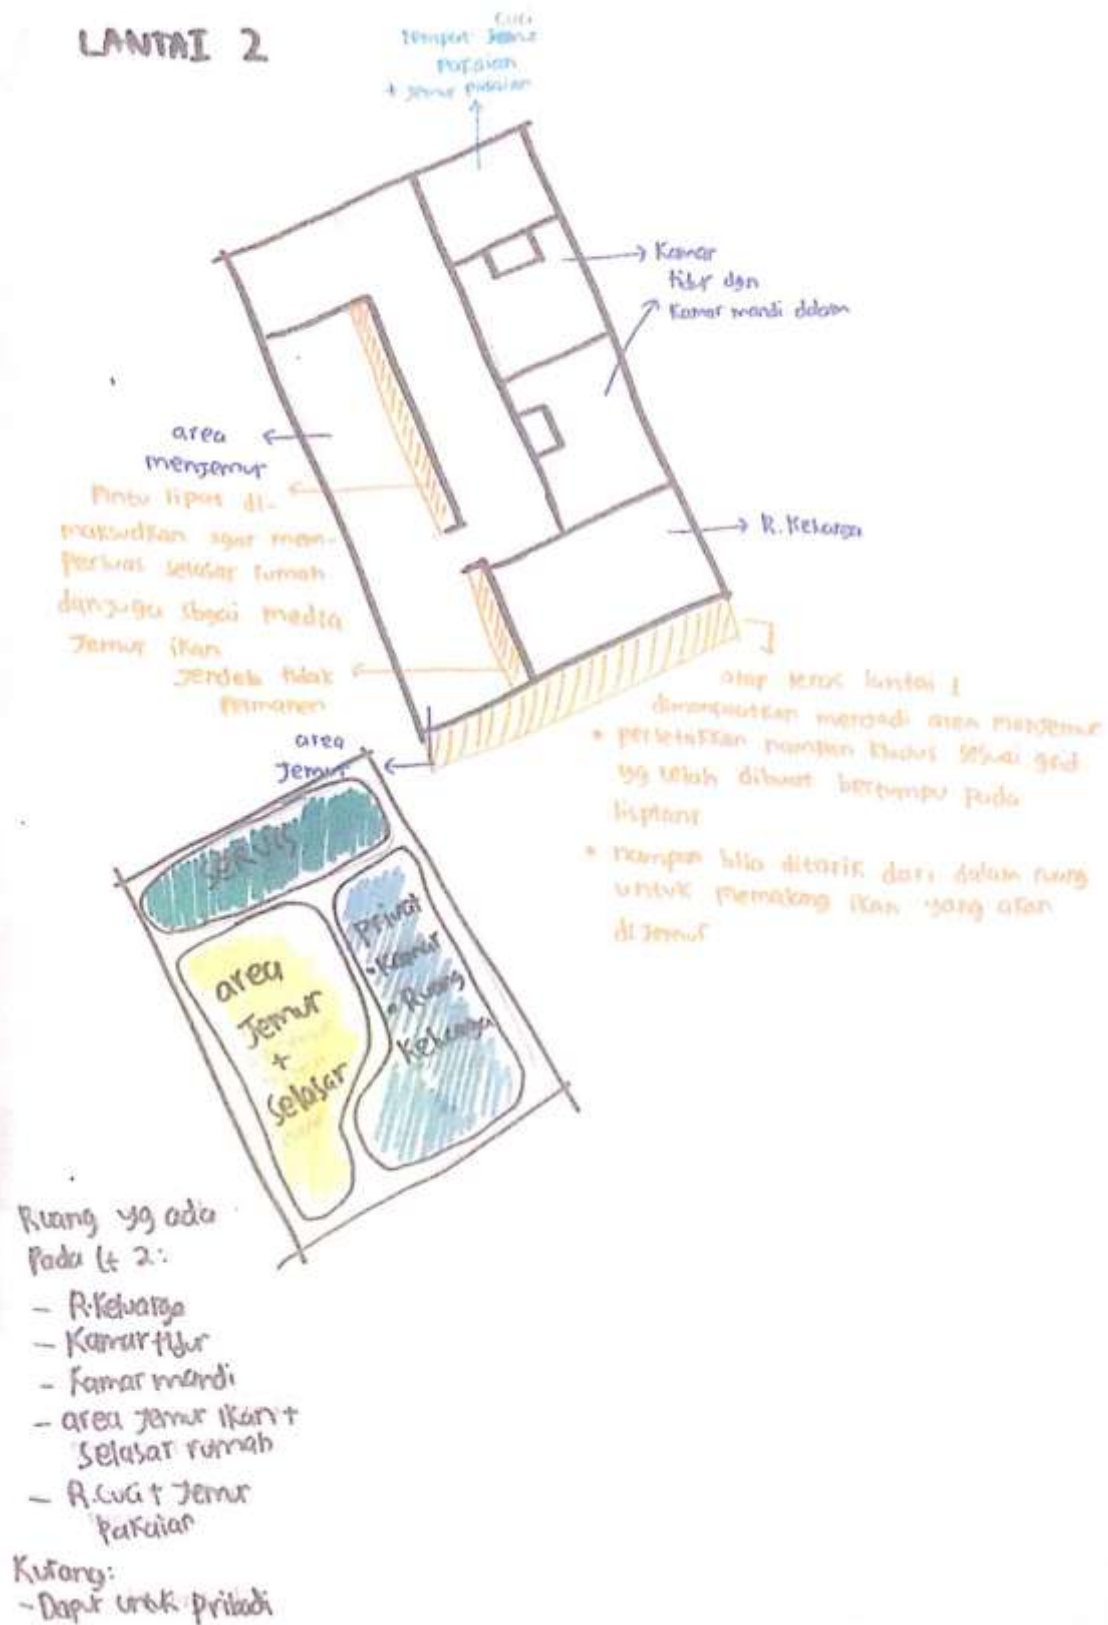 LANTAI 2
Cuci
tempat Jemur
pakaian
+ jemur pakaian
Kamar
tidur dgn
Kamar mandi dalam
area
menjemur
Pintu lipat di-
maksudkan agar mem-
perluas selasar rumah
dan juga sbgai media
Jemur ikan
R. Keluarga
Jendela tidak
Permanen
atap teras lantai 1
dimanfaatkan menjadi area menjemur
area
Jemur
• perletakkan nampan khusus sesuai grid
yg telah dibuat bertumpu pada
lisplank
• nampan bisa ditarik dari dalam ruang
untuk memajang ikan yang akan
di jemur
SERVIS
privat
• Kamar
• Ruang
Keluarga
area
Jemur
+
Selasar
Ruang yg ada
Pada lt 2:
- R.Keluarga
- Kamar tidur
- Kamar mandi
- area Jemur Ikan +
Selasar rumah
- R.Cuci + Jemur
pakaian
Kurang:
- Dapur untuk pribadi